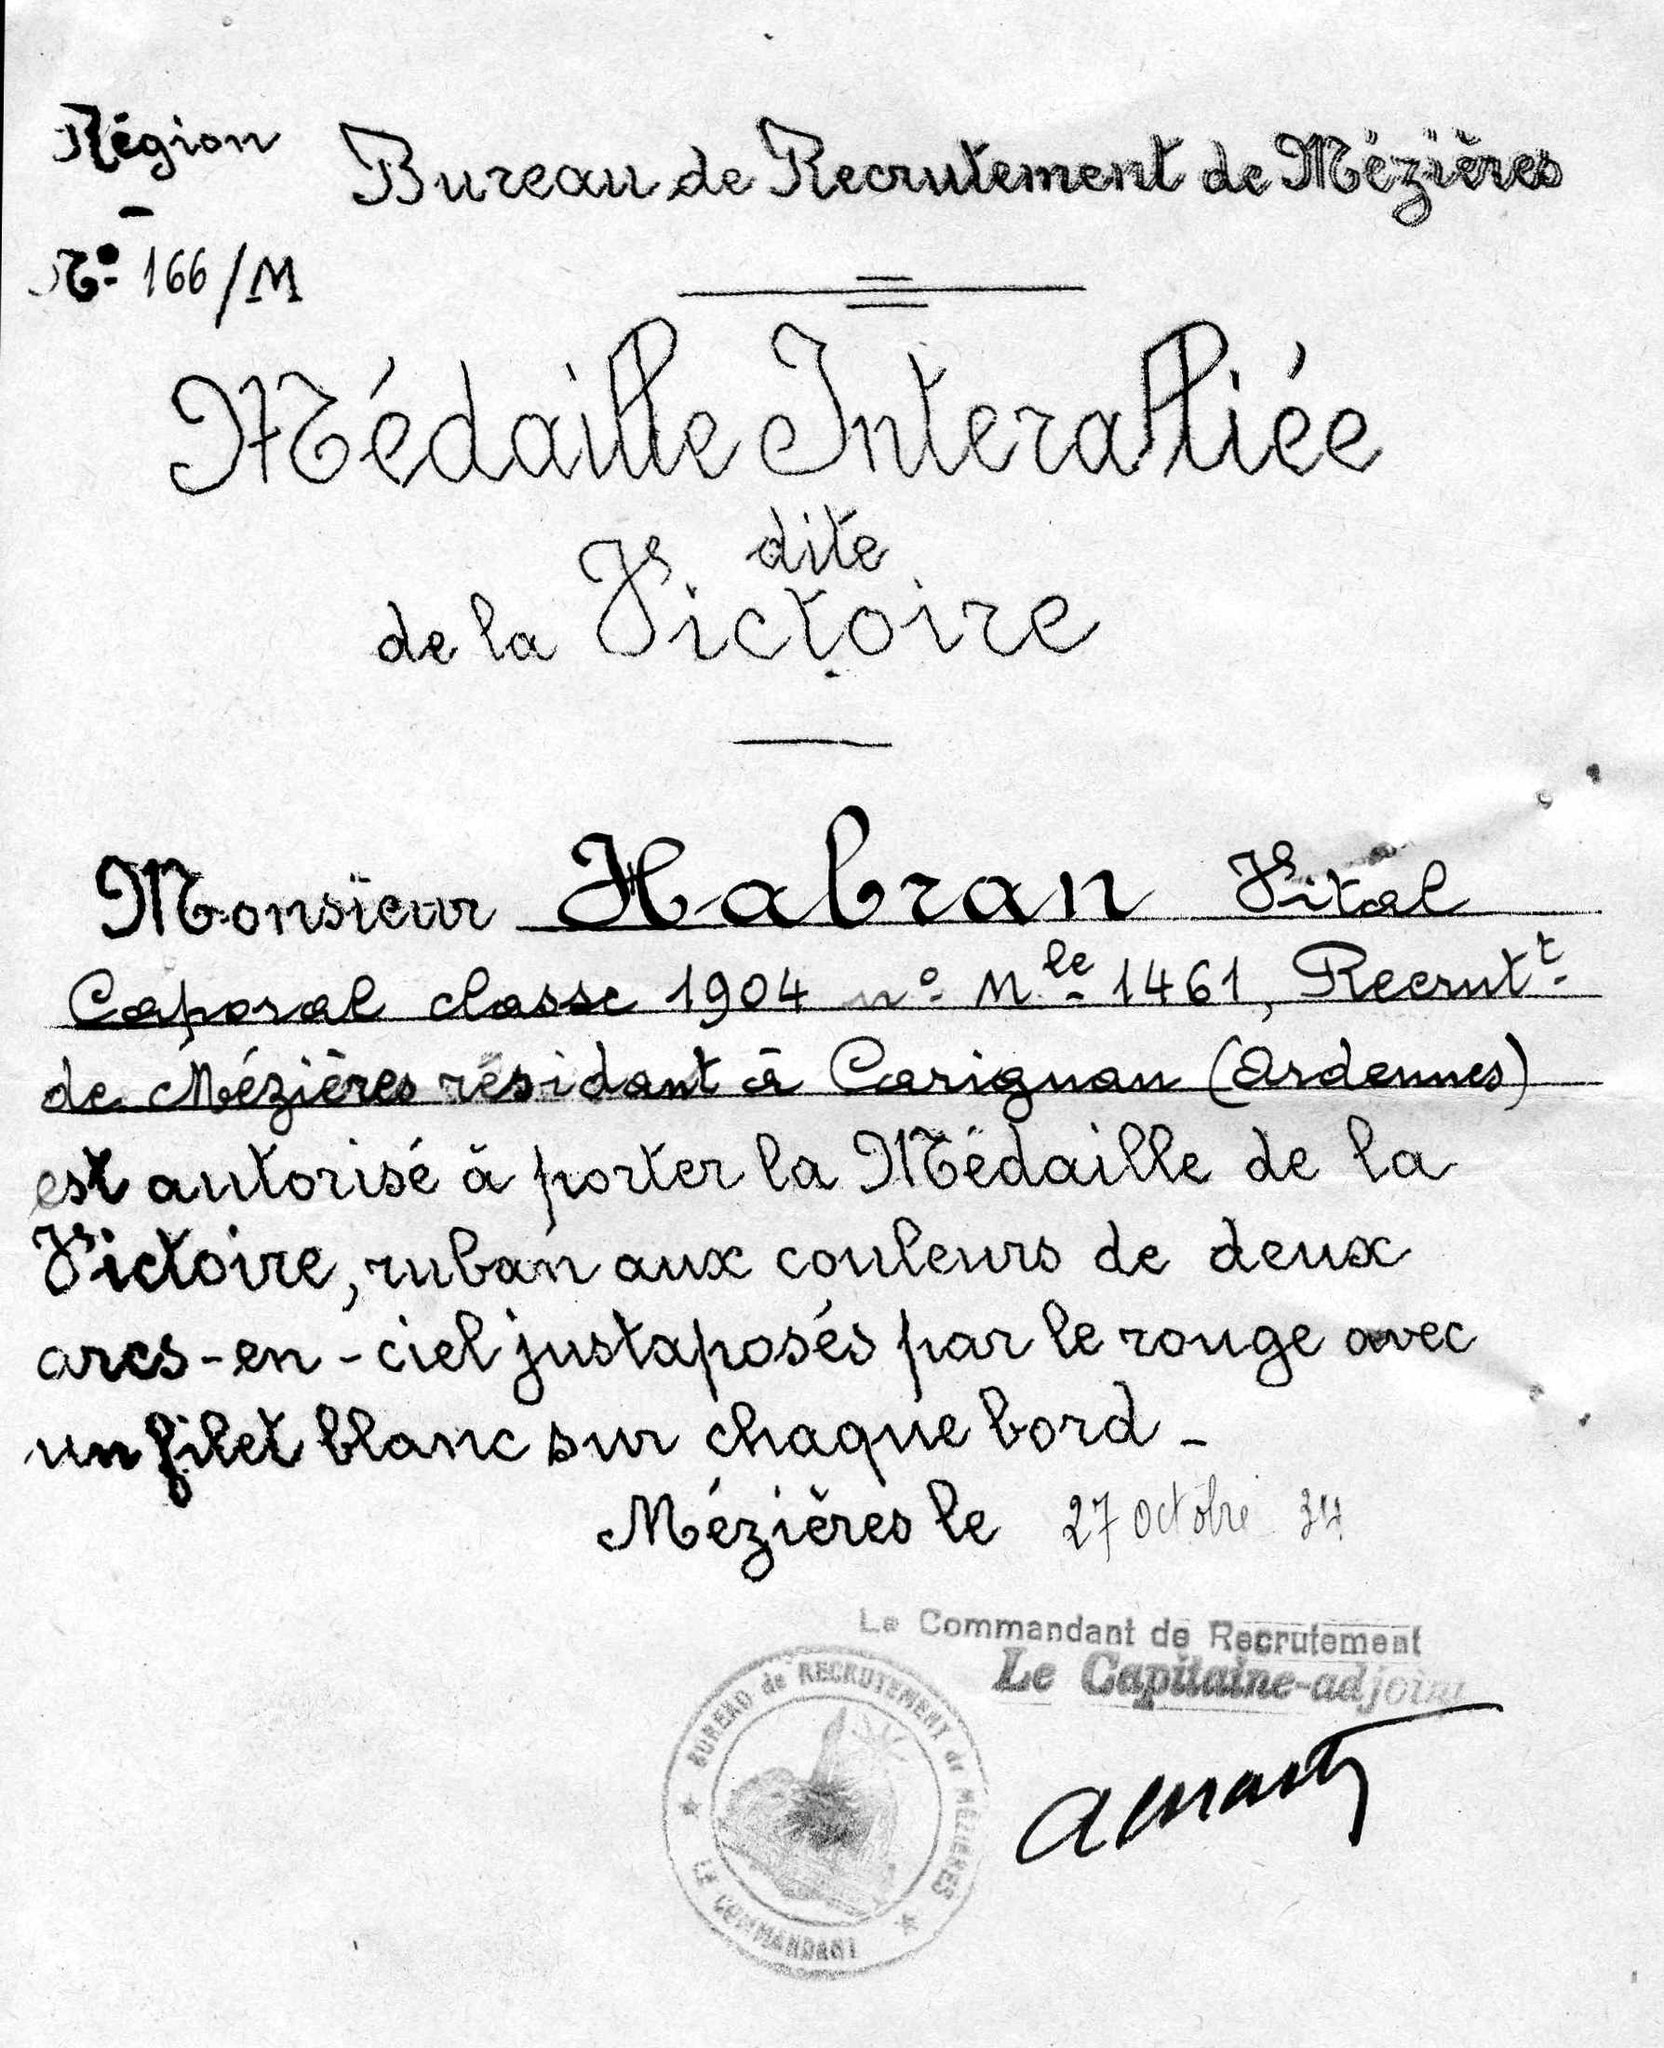 Région
Bureau de Recrutement de Mézières
N° 166/M
Médaille Interalliée
dite
de la Victoire
Monsieur Habran Vital
Caporal classe 1904 n° Mle 1461, Recrutt
de Mézières résidant à Carignan (Ardennes)
est autorisé à porter la Médaille de la
Victoire, ruban aux couleurs de deux
arcs-en-ciel justaposés par le rouge avec
un filet blanc sur chaque bord -
Mézières le 27 octobre 34
Le Commandant de Recrutement
Le Capitaine-adjoint
BUREAU de RECRUTEMENT de MÉZIÈRES
LE COMMANDANT